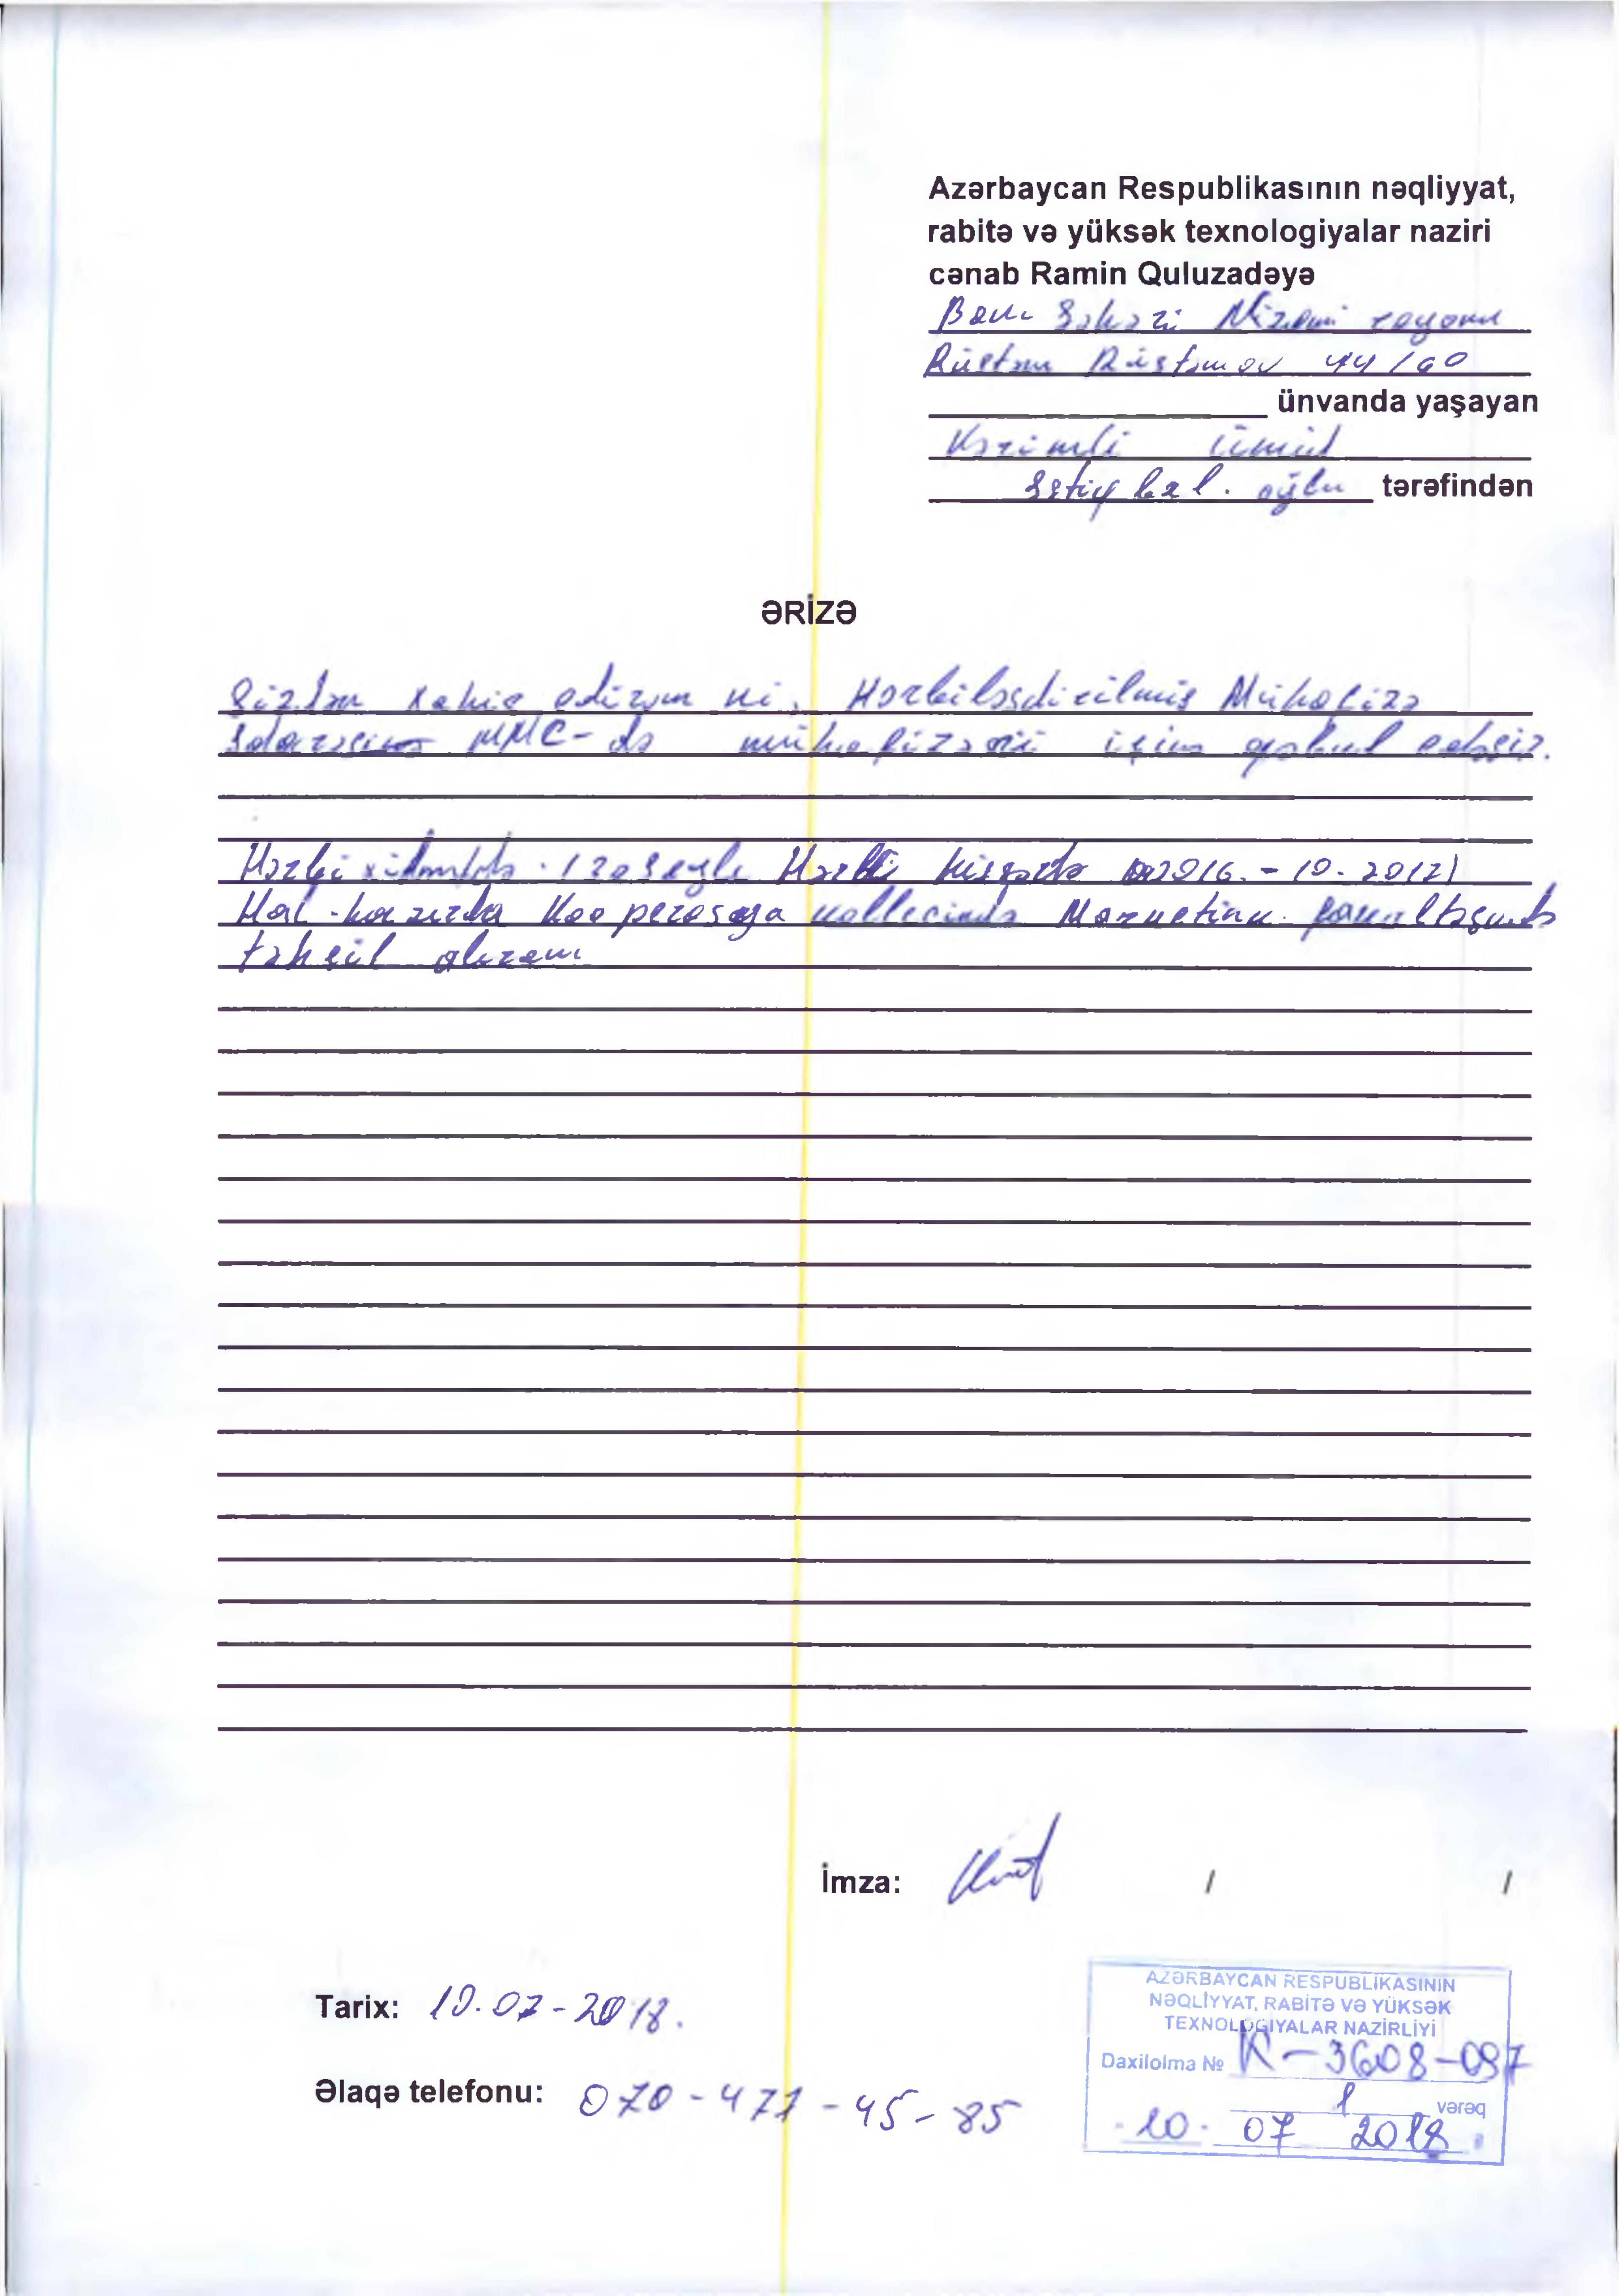 Azərbaycan Respublikasının nəqliyyat,
rabitə və yüksək texnologiyalar naziri
cənab Ramin Quluzadəyə
Bakı Şəhəri Nizami rayonu
Rüstəm Rüstəmov 44/60
ünvanda yaşayan
Kərimli Ümid
İstiqbal. oğlu tərəfindən
ƏRİZƏ
Sizdən Xahiş edirəm ki, Hərbiləşdirilmiş Mühafizə
İdarəsi MMC-də mühafizəçi işinə qəbul edəsiz.
Hərbi xidmətdə Hərbi hissədə 2016. - 10. 2017)
Hal-hazırda Kooperasiya kollecində Marketinq fakultəsində
təhsil alıram
İmza: / /
Tarix: 10.07-2018.
Əlaqə telefonu: 070-471-45-85
AZƏRBAYCAN RESPUBLİKASININ
NƏQLİYYAT, RABİTƏ VƏ YÜKSƏK
TEXNOLOGİYALAR NAZİRLİYİ
Daxilolma № K-3608-087
1 vərəq
10. 07 2018